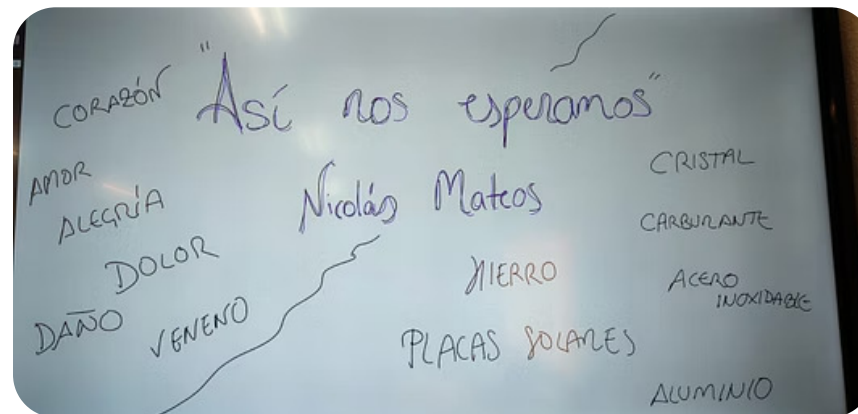 "Así nos esperamos"
Nicolás Mateos
CORAZÓN
AMOR
ALEGRÍA
DOLOR
DAÑO
VENENO
HIERRO
PLACAS SOLARES
CRISTAL
CARBURANTE
ACERO
INOXIDABLE
ALUMINIO